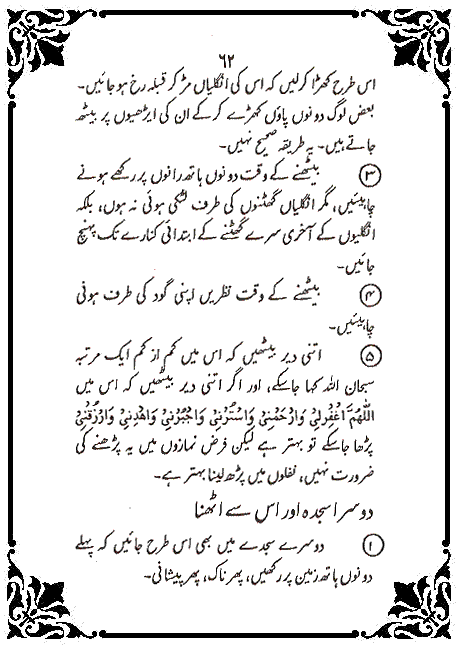 ۶۲
اس طرح کھڑا کرلیں کہ اس کی انگلیاں مڑ کر قبلہ رخ ہو جائیں۔
بعض لوگ دونوں پاؤں کھڑے کرکے ان کی ایڑھیوں پر بیٹھ
جاتے ہیں۔ یہ طریقہ صحیح نہیں۔
۳ بیٹھنے کے وقت دونوں ہاتھ رانوں پر رکھے ہونے
چاہئیں، مگر انگلیاں گھٹنوں کی طرف لٹکی ہوئی نہ ہوں، بلکہ
انگلیوں کے آخری سرے گھٹنے کے ابتدائی کنارے تک پہنچ
جائیں۔
۴ بیٹھنے کے وقت نظریں اپنی گود کی طرف ہونی
چاہیئیں۔
۵ اتنی دیر بیٹھیں کہ اس میں کم از کم ایک مرتبہ
سبحان اللہ کہا جاسکے، اور اگر اتنی دیر بیٹھیں کہ اس میں
اَللّٰھُمَّ اغْفِرْلِیْ وَارْحَمْنِیْ وَاسْتُرْنِیْ وَاجْبُرْنِیْ وَاھْدِنِیْ وَارْزُقْنِیْ
پڑھا جاسکے تو بہتر ہے لیکن فرض نمازوں میں یہ پڑھنے کی
ضرورت نہیں، نفلوں میں پڑھ لینا بہتر ہے۔
دوسرا سجدہ اور اس سے اٹھنا
۱ دوسرے سجدے میں بھی اس طرح جائیں کہ پہلے
دونوں ہاتھ زمین پر رکھیں، پھر ناک، پھر پیشانی۔